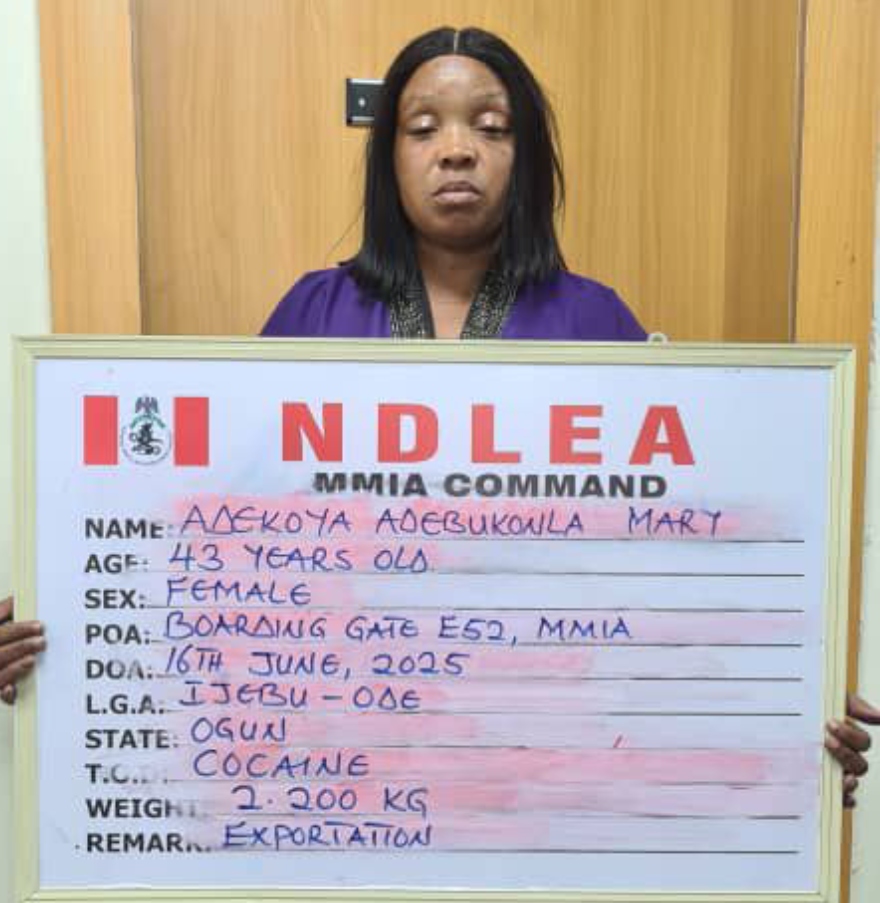 NDLEA
MMIA COMMAND
NAME: ADEKOYA ADEBUKONLA MARY
AGE: 43 YEARS OLD.
SEX: FEMALE
POA: BOARDING GATE E52, MMIA
DOA: 16TH JUNE, 2025
L.G.A: IJEBU - ODE
STATE: OGUN
T.O.D: COCAINE
WEIGHT: 2.200 KG
REMARK: EXPORTATION